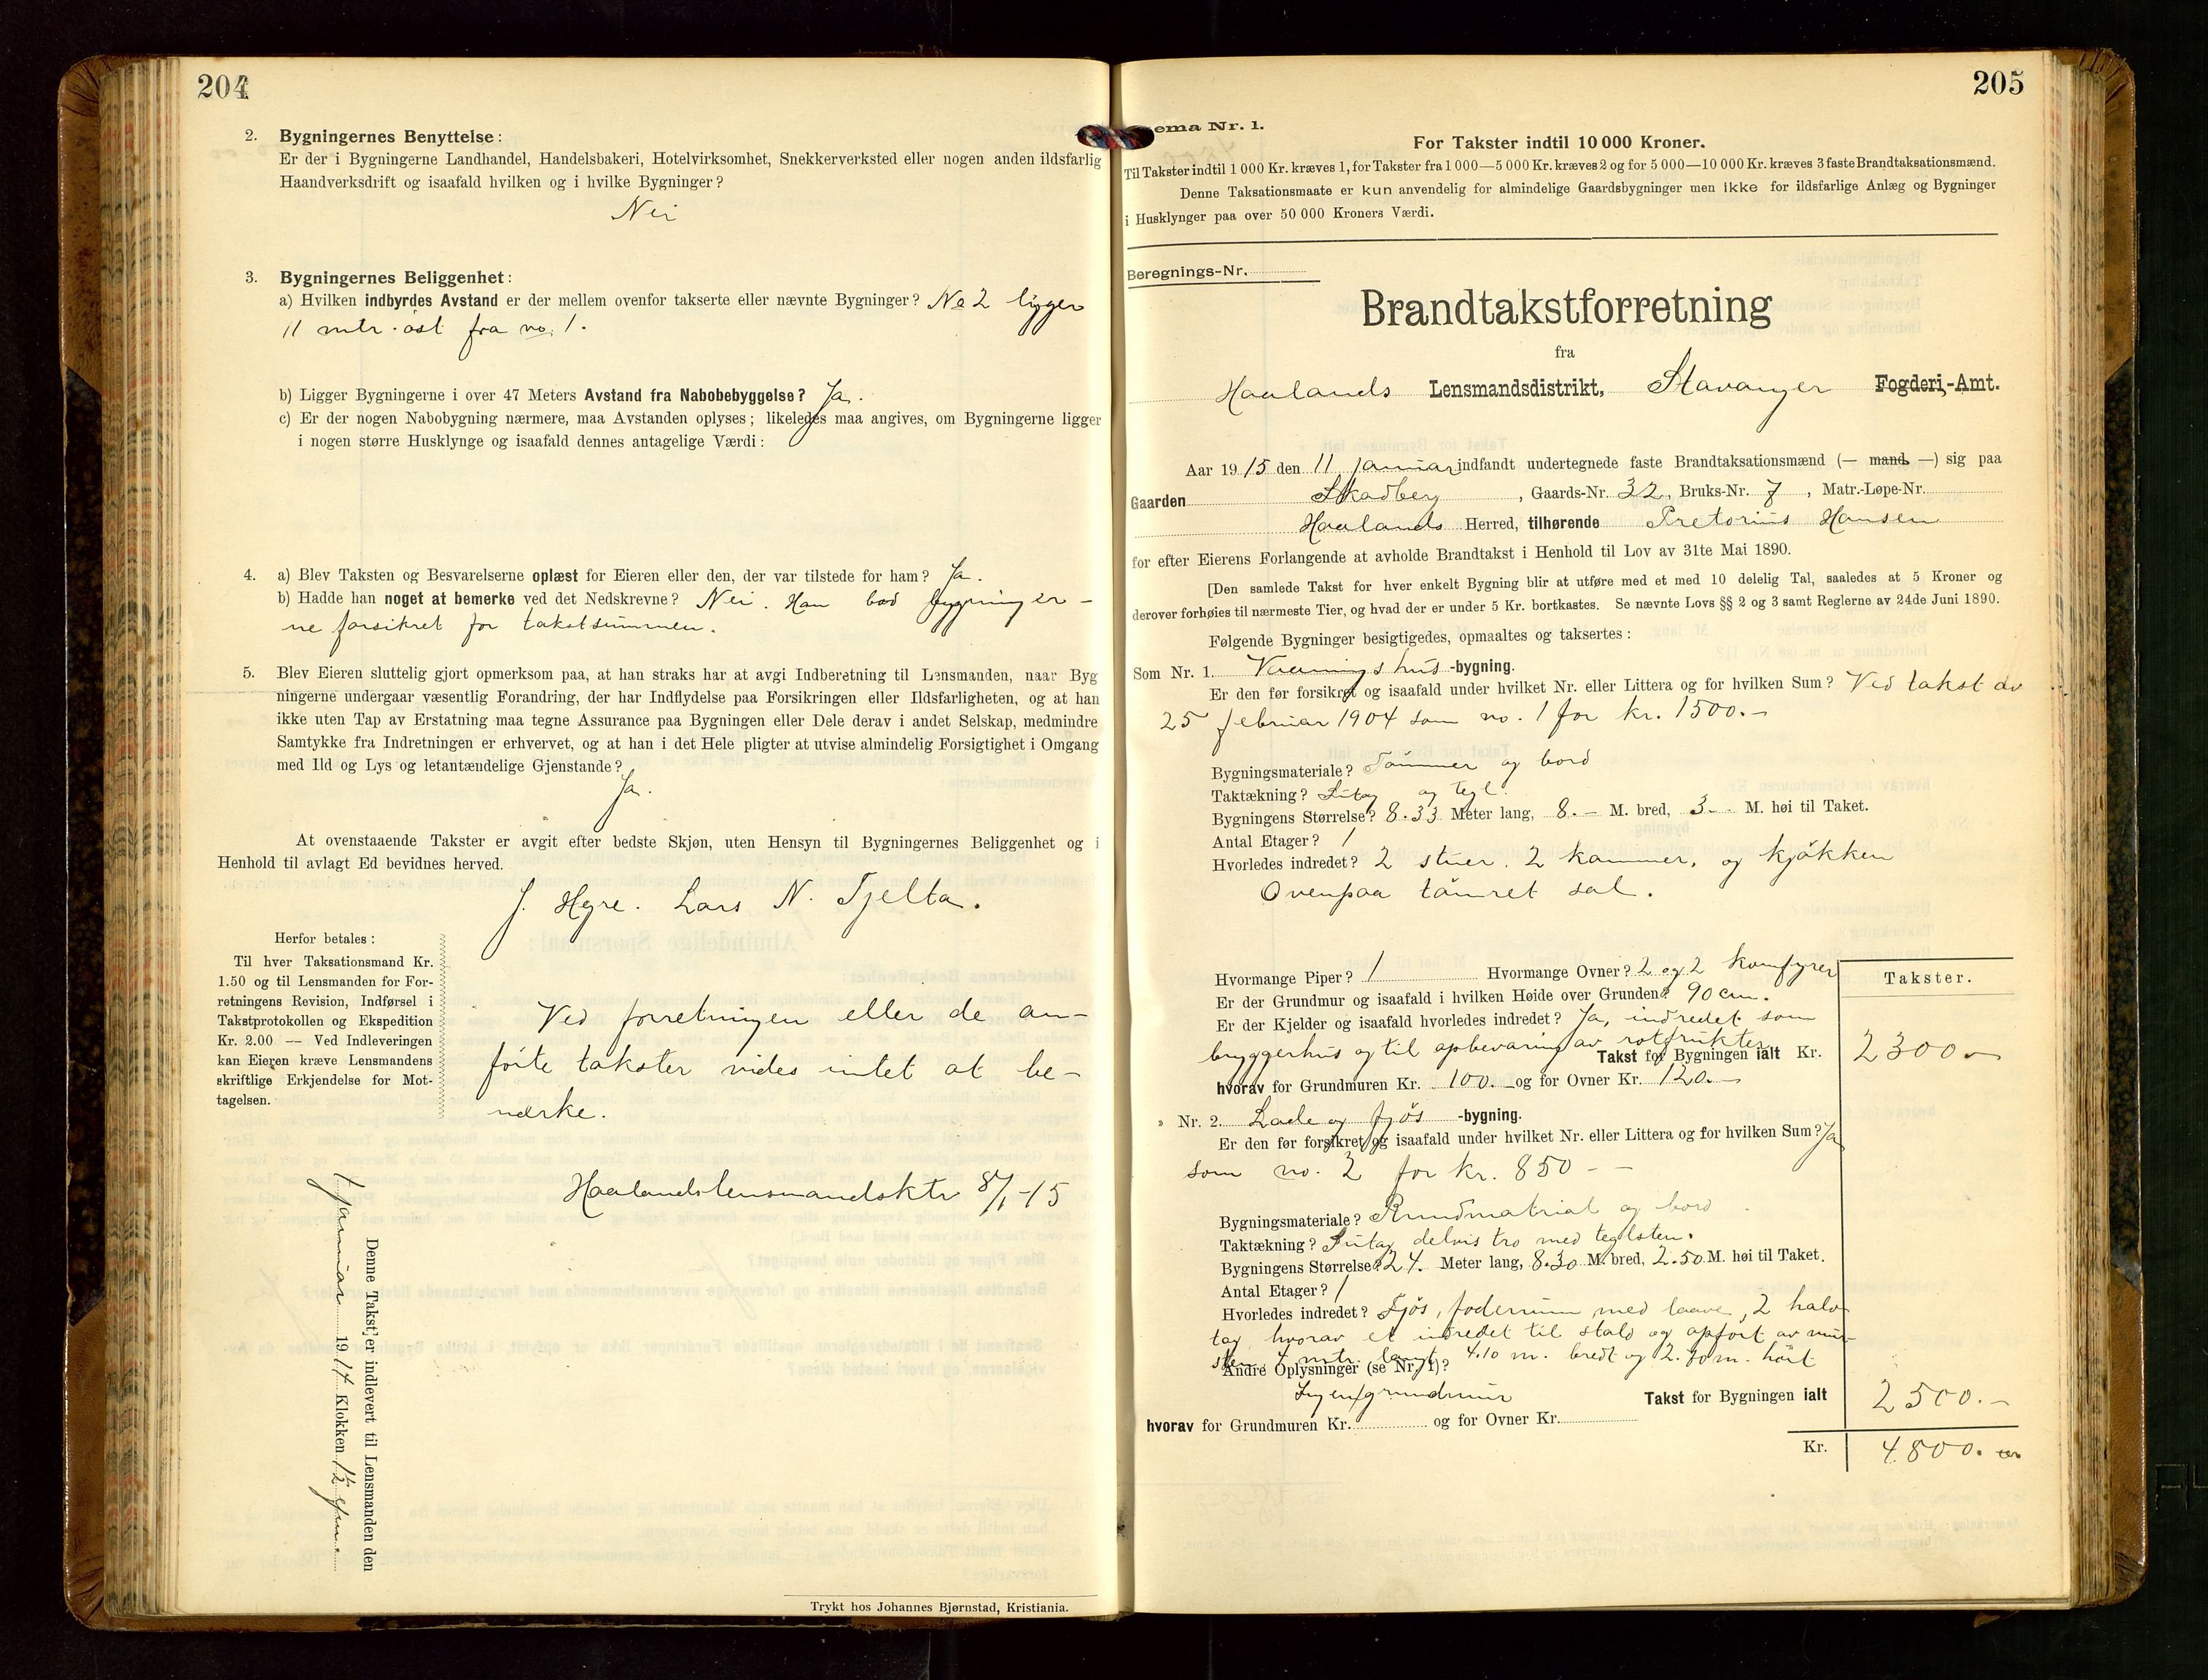 204
2. Bygningernes Benyttelse:
Er der i Bygningerne Landhandel, Handelsbakeri, Hotelvirksomhet, Snekkerverksted eller nogen anden ildsfarlig
Haandverksdrift og isaafald hvilken og i hvilke Bygninger?
Nei
3. Bygningernes Beliggenhet:
a) Hvilken indbyrdes Avstand er der mellem ovenfor takserte eller nævnte Bygninger? No 2 ligger
11 mtr. öst fra no. 1.
b) Ligger Bygningerne i over 47 Meters Avstand fra Nabobebyggelse? Ja.
c) Er der nogen Nabobygning nærmere, maa Avstanden oplyses; likeledes maa angives, om Bygningerne ligger
i nogen større Husklynge og isaafald dennes antagelige Værdi:
4. a) Blev Taksten og Besvarelserne oplæst for Eieren eller den, der var tilstede for ham? Ja.
b) Hadde han noget at bemerke ved det Nedskrevne? Nei. Han bad bygninger-
ne forsikret for takstsummen.
5. Blev Eieren sluttelig gjort opmerksom paa, at han straks har at avgi Indberetning til Lensmanden, naar Byg
ningerne undergaar væsentlig Forandring, der har Indflydelse paa Forsikringen eller Ildsfarligheten, og at han
ikke uten Tap av Erstatning maa tegne Assurance paa Bygningen eller Dele derav i andet Selskap, medmindre
Samtykke fra Indretningen er erhvervet, og at han i det Hele pligter at utvise almindelig Forsigtighet i Omgang
med Ild og Lys og letantændelige Gjenstande?
Ja.
At ovenstaaende Takster er avgit efter bedste Skjøn, uten Hensyn til Bygningernes Beliggenhet og i
Henhold til avlagt Ed bevidnes herved.
J. Hegre. Lars N. Tjelta.
Herfor betales:
Til hver Taksationsmand Kr.
1.50 og til Lensmanden for For-
retningens Revision, Indførsel i
Takstprotokollen og Ekspedition
Kr. 2.00 — Ved Indleveringen
kan Eieren kræve Lensmandens
skriftlige Erkjendelse for Mot-
tagelsen.
Ved forretningen eller de an-
förte takster vides intet at be-
merke.
Haalandslensmandsktr 8/1-15
Denne Takst er indlevert til Lensmanden den
7 januar 1914 Klokken 1½ efm.
Trykt hos Johannes Bjørnstad, Kristiania.
205
ema Nr. 1.
For Takster indtil 10 000 Kroner.
Til Takster indtil 1 000 Kr. kræves 1, for Takster fra 1 000—5 000 Kr. kræves 2 og for 5 000—10 000 Kr. kræves 3 faste Brandtaksationsmænd.
Denne Taksationsmaate er kun anvendelig for almindelige Gaardsbygninger men ikke for ildsfarlige Anlæg og Bygninger
i Husklynger paa over 50 000 Kroners Værdi.
Beregnings-Nr.
Brandtakstforretning
fra
Haalands Lensmandsdistrikt, Stavanger Fogderi-Amt.
Aar 1915 den 11 januar indfandt undertegnede faste Brandtaksationsmænd (— mand. —) sig paa
Gaarden Skadberg, Gaards-Nr. 32, Bruks-Nr. 7, Matr.-Løpe-Nr.
Haalands Herred, tilhørende Pretorius Hansen
for efter Eierens Forlangende at avholde Brandtakst i Henhold til Lov av 31te Mai 1890.
[Den samlede Takst for hver enkelt Bygning blir at utføre med et med 10 delelig Tal, saaledes at 5 Kroner og
derover forhøies til nærmeste Tier, og hvad der er under 5 Kr. bortkastes. Se nævnte Lovs §§ 2 og 3 samt Reglerne av 24de Juni 1890.
Følgende Bygninger besigtigedes, opmaaltes og taksertes:
Som Nr. 1. Vaaningshus-bygning.
Er den før forsikret og isaafald under hvilket Nr. eller Littera og for hvilken Sum? Ved takst av
25 februar 1904 som no. 1 for kr. 1500.-
Bygningsmateriale? Tömmer og bord
Taktækning? Sutag og tegl.
Bygningens Størrelse? 8.33 Meter lang, 8.- M. bred, 3.- M. høi til Taket.
Antal Etager? 1
Hvorledes indredet? 2 stuer. 2 kammer, og kjökken
Ovenpaa tömret sal.
Hvormange Piper? 1 Hvormange Ovner? 2 og 2 komfyrer
Takster.
Er der Grundmur og isaafald i hvilken Høide over Grunden? 90 cm.
Er der Kjelder og isaafald hvorledes indredet? Ja, indredet som
bryggerhus og til opbevaring av rotfrukter
Takst for Bygningen ialt Kr. 2300.-
hvorav for Grundmuren Kr. 100.- og for Ovner Kr. 120.-
» Nr. 2. Lade og fjös-bygning.
Er den før forsikret og isaafald under hvilket Nr. eller Littera og for hvilken Sum? Ja
som no. 2 for kr. 850 - -
Bygningsmateriale? Rundmatrial og bord
Taktækning? Sutag delvis tro med teglsten.
Bygningens Størrelse? 24. Meter lang, 8.30 M. bred, 2.50 M. høi til Taket.
Antal Etager? 1
Hvorledes indredet? Fjös, foderrum med laave, 2 halv
tag hvorav et indredet til stald og opfört av mur-
sten. 4 mtr. langt 4.10 m. bredt og 2. m. höit
Andre Oplysninger (se Nr. 1)?
Ingen grundmur
Takst for Bygningen ialt 2500.-
hvorav for Grundmuren Kr. og for Ovner Kr.
Kr. 4.800.